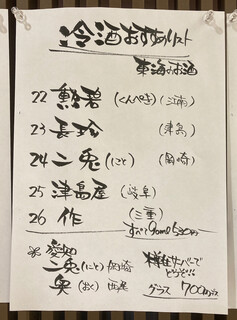 冷酒おすすめリスト
東海のお酒
22 勲碧 (くんぺき) (江南)
23 長珍 (津島)
24 二兎 (にと) (岡崎)
25 津島屋 (岐阜)
26 作 (三重)
すべて90ml 530円
愛知
二兎(にと)岡崎
奥(おく)西尾
どうぞ!!
グラス 700円